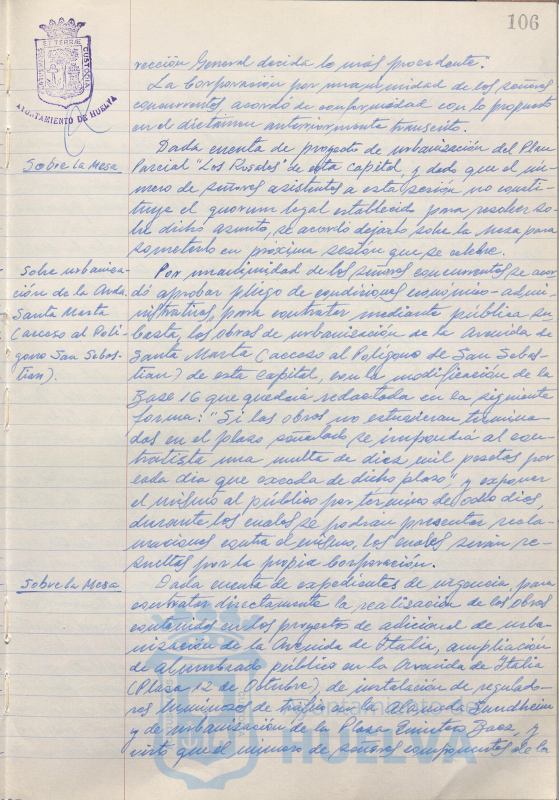 106
PORTUS MARIS ET TERRAE CUSTODIA
AYUNTAMIENTO DE HUELVA
rección General decida lo más procedente.
La Corporación por unanimidad de los señores
concurrentes acordo de conformidad con lo propuesto
en el dictamen anteriormente transcrito.
Sobre la Mesa
Dada cuenta de proyecto de urbanización del Plan
Parcial "Los Rosales" de esta capital, y dado que el nú-
mero de señores asistentes a esta sesión no consti-
tuye el quorum legal establecido para resolver so-
bre dicho asunto, se acordó dejarlo sobre la Mesa para
someterlo en próxima sesión que se celebre.
Sobre urbaniza-
ción de la Avda.
Santa Marta
(acceso al Polí-
gono San Sebas-
tian).
Por unanimidad de los señores concurrentes se acor-
dó aprobar pliego de condiciones económico-admi-
nistrativas, para contratar mediante pública su-
basta, las obras de urbanización de la Avenida de
Santa Marta (acceso al Polígono de San Sebas-
tian) de esta capital, con la modificación de la
Base 16 que quedaria redactada en la siguiente
forma: "Si las obras no estuvieran termina-
das en el plazo señalado se impondrá al con-
tratista una multa de diez mil pesetas por
cada día que exceda de dicho plazo", y exponer
el mismo al público por término de ocho días,
durante los cuales se podrán presentar recla-
maciones contra el mismo, las cuales serán re-
sueltas por la propia Corporación.
Sobre la Mesa
Dada cuenta de expedientes de urgencia, para
contratar directamente la realización de las obras
contenidas en los proyectos de adicional de urba-
nización de la Avenida de Italia, ampliación
de alumbrado público en la Avenida de Italia
(Plaza 12 de Octubre), de instalación de regulado-
res luminosos de tráfico en la Alameda Sundheim
y de urbanización de la Plaza Quintero Baez, y
visto que el número de señores componentes de la
Ayuntamiento de
HUELVA